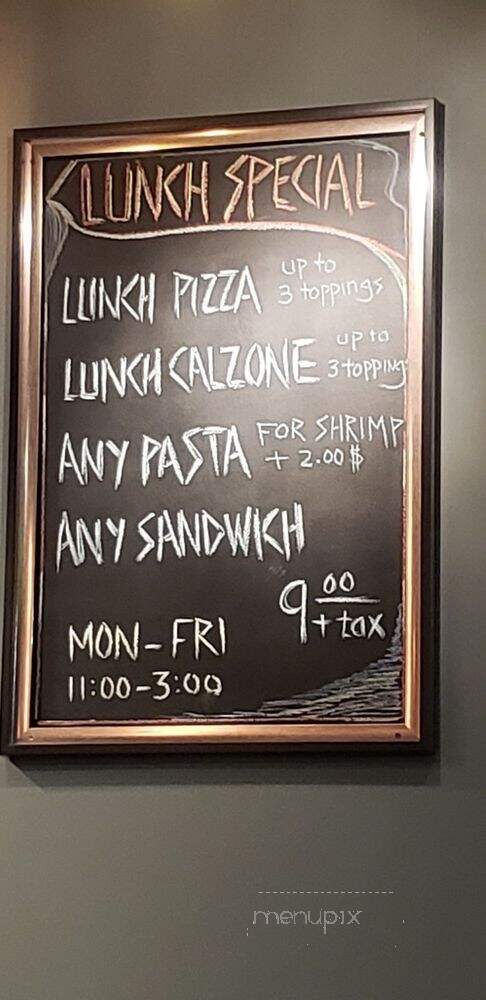 LUNCH SPECIAL
LUNCH PIZZA up to
3 toppings
LUNCH CALZONE up to
3 topping
ANY PASTA FOR SHRIMP
+ 2.00 $
ANY SANDWICH
9 00
+ tax
MON-FRI
11:00-3:00
menupix